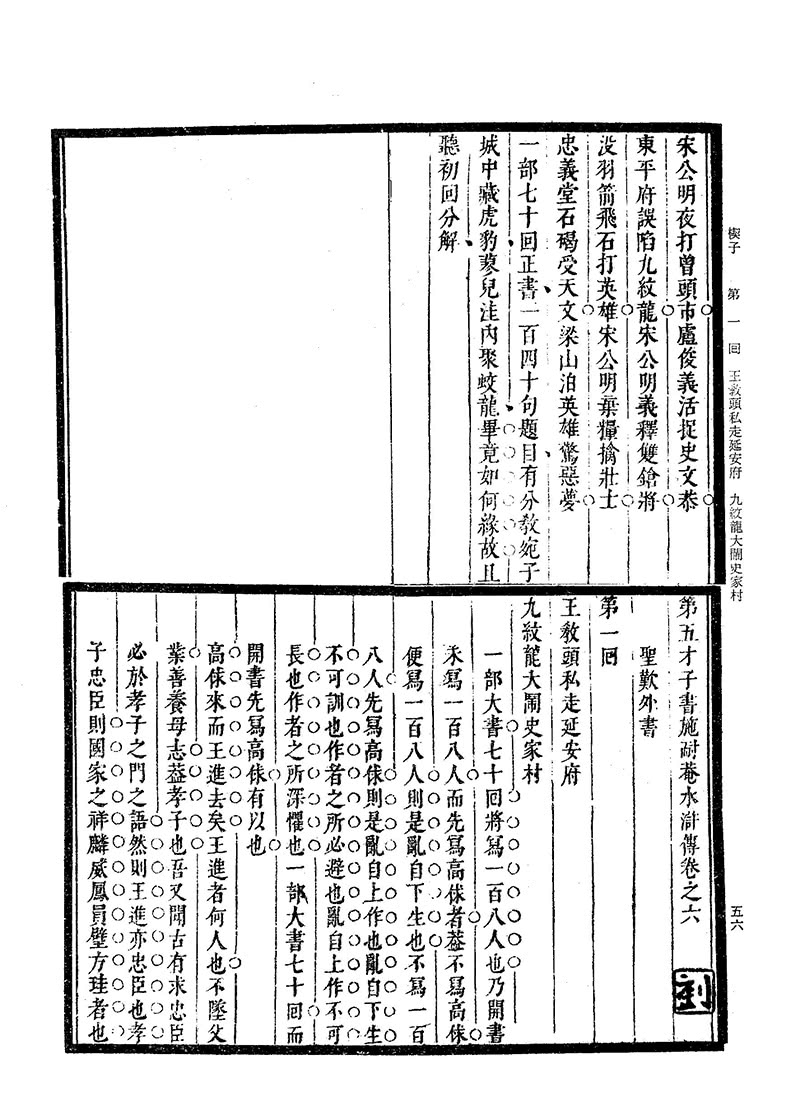 楔子　第一回　王敎頭私走延安府　九紋龍大鬧史家村
五六
宋公明夜打曾頭市盧俊義活捉史文恭
東平府誤陷九紋龍宋公明義釋雙鎗將
没羽箭飛石打英雄宋公明棄糧擒壯士
忠義堂石碣受天文梁山泊英雄驚惡夢
一部七十回正書一百四十句題目有分敎宛子
城中藏虎豹蓼兒洼內聚蛟龍畢竟如何緣故且
聽初回分解
第五才子書施耐菴水滸傳卷之六
聖歎外書
第一回
王敎頭私走延安府
九紋龍大鬧史家村
一部大書七十回將寫一百八人也乃開書
未寫一百八人而先寫高俅者葢不寫高俅
便寫一百八人則是亂自下生也不寫一百
八人先寫高俅則是亂自上作也亂自下生
不可訓也作者之所必避也亂自上作不可
長也作者之所深懼也一部大書七十回而
開書先寫高俅有以也
高俅來而王進去矣王進者何人也不墜父
業善養母志葢孝子也吾又聞古有求忠臣
必於孝子之門之語然則王進亦忠臣也孝
子忠臣則國家之祥麟威鳳員璧方珪者也